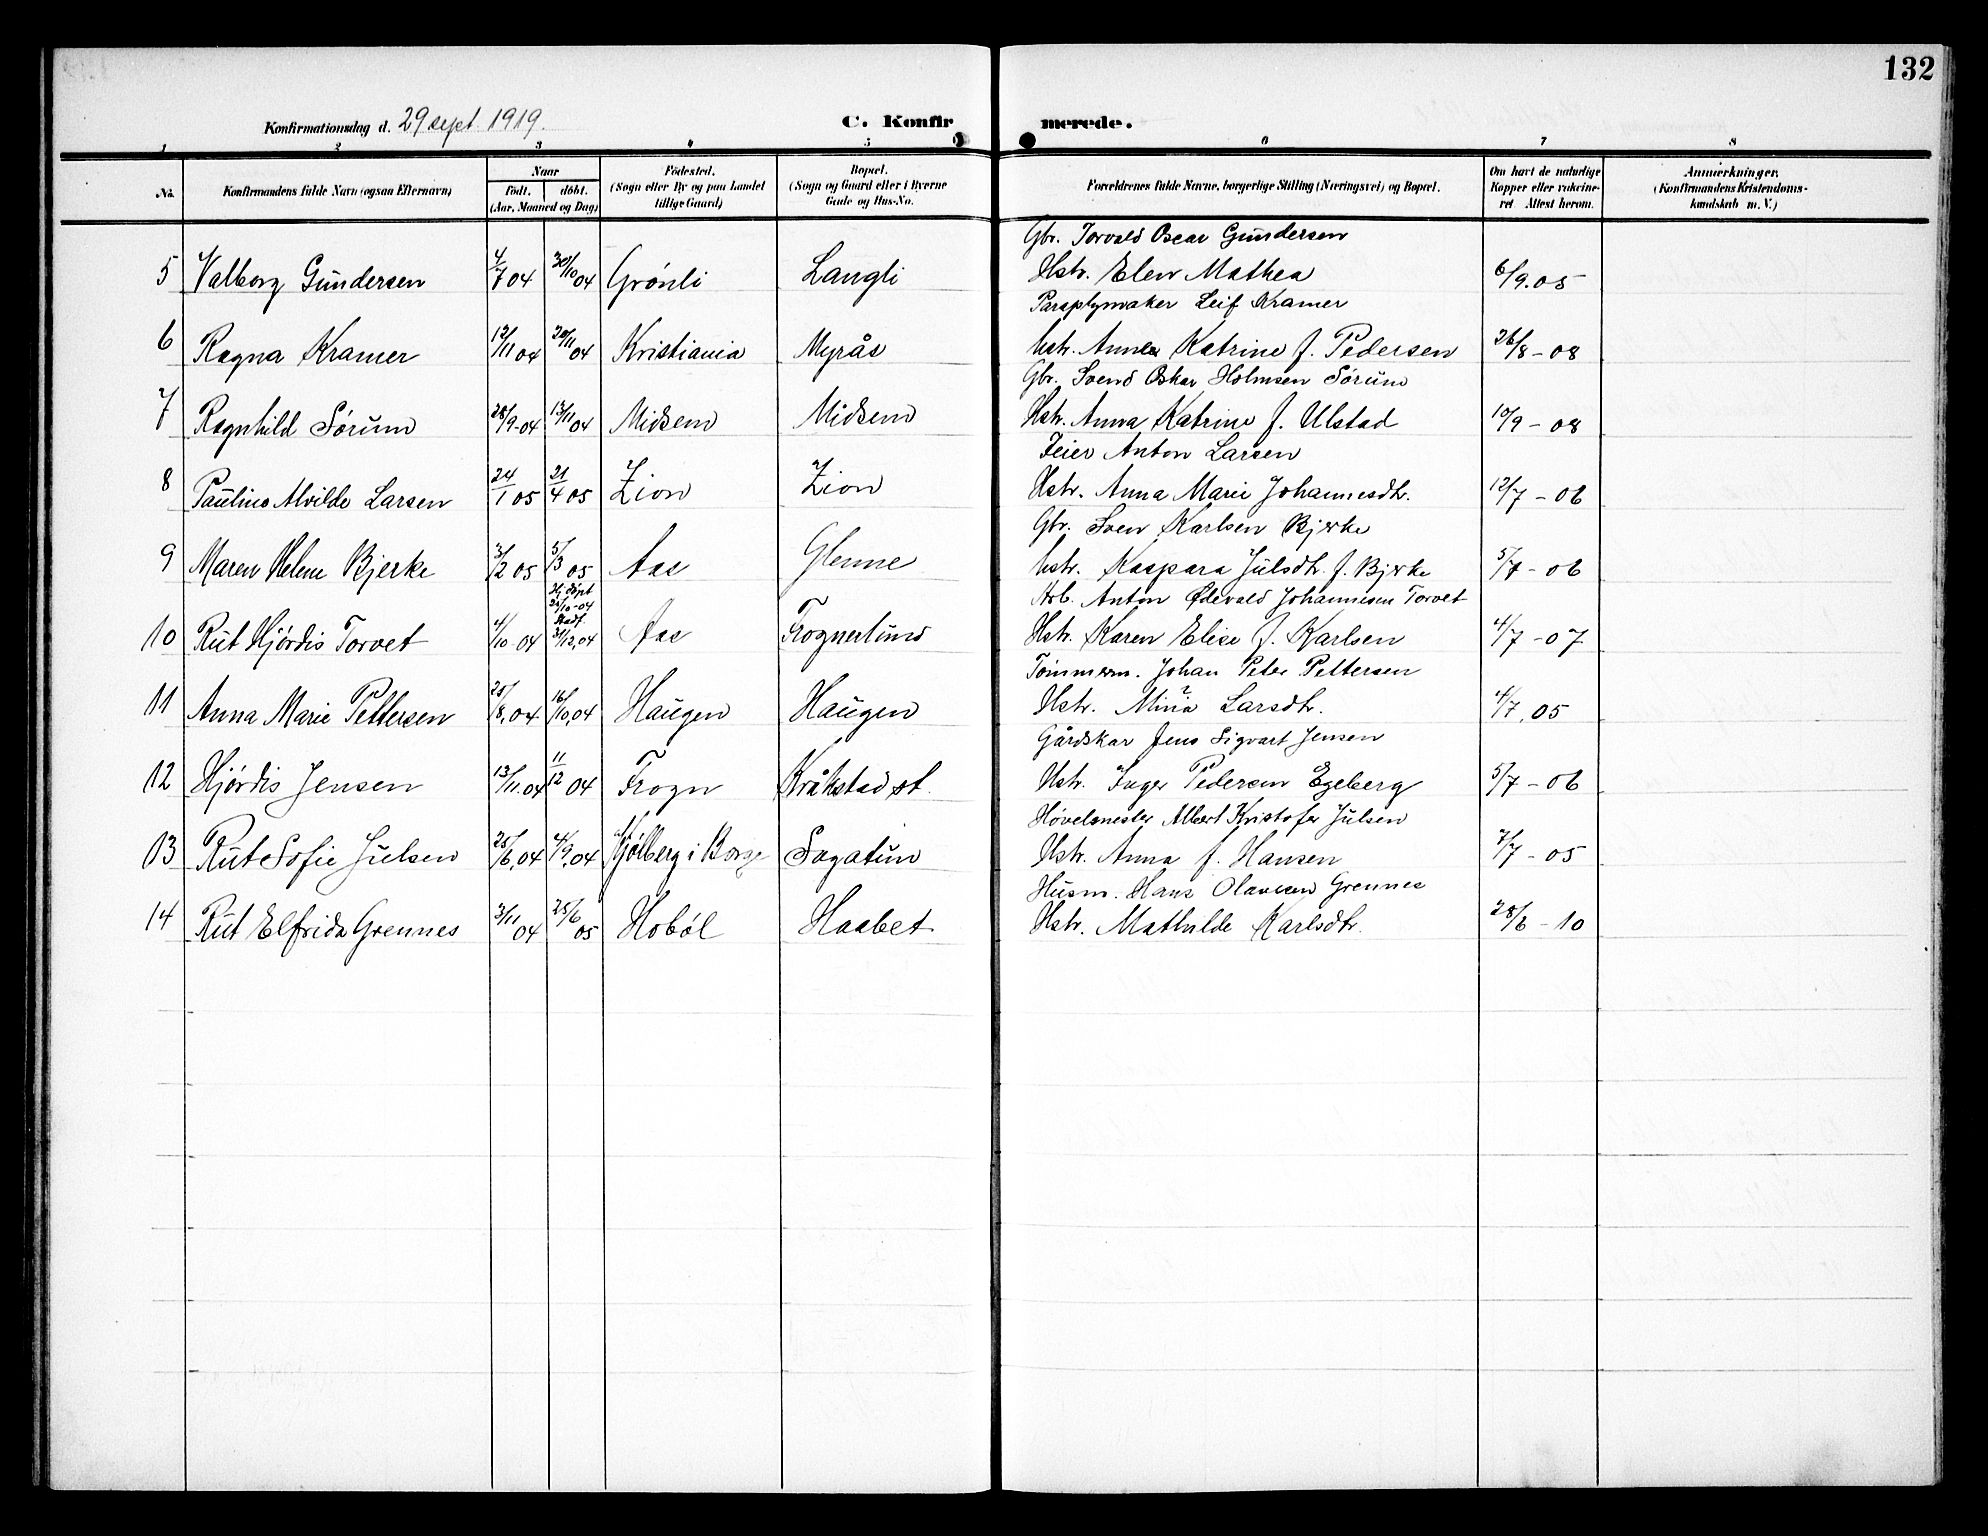 132
Konfirmationsdag d. 29 sept. 1919.
C. Konfirmerede.
1 2 3 4 5 6 7 8
No.
Konfirmandens fulde Navn (ogsaa Efternavn)
Naar
født. døbt.
(Aar, Maaned og Dag)
Fødested.
(Sogn eller By og paa Landet
tillige Gaard)
Bopæl.
(Sogn og Gaard eller i Byerne
Gade og Hus-No.
Forældrenes fulde Navne, borgerlige Stilling (Næringsvei) og Bopæl.
Om havt de naturlige
Kopper eller vakcine-
ret Attest herom.
Anmærkninger.
(Konfirmandens Kristendoms-
kundskab m. V.)
Gbr. Torvald Oscar Gundersen
5 Valborg Gundersen 4/7 04 30/10 04 Grönli Langli Hstr. Elen Mathea 6/9.05
Paraplymaker Leif Kramer
6 Ragna Kramer 12/11 04 20/11 04 Kristiania Myrås Hstr. Anna Katrine f. Pedersen 26/8-08
Gbr. Svend Oskar Holmsen Sörum
7 Ragnhild Sörum 28/9-04 13/11 04 Midsem Midsem Hstr. Anna Katrine f. Ulstad 10/9-08
Feier Anton Larsen
8 Pauline Alvilde Larsen 24/1 05 21/4 05 Zion Zion Hstr. Anna Marie Johannesdtr. 12/7-06
Gbr. Sven Karlsen Bjerke
9 Maren Helene Bjerke 3/2 05 5/3 05 Aas Glenne Hstr. Kaspara Julsdtr. f. Bjerke 5/7-06
Hj. döpt
26/10-04
Stadf.
Arb. Anton Ödevald Johannesen Torvet
10 Rut Hjördis Torvet 4/10 04 31/12,04 Aas Frognerlund Hstr. Karen Elise f. Karlsen 4/7-07
Tömmerm. Johan Peter Pettersen
11 Anna Marie Pettersen 25/8,04 16/10,04 Haugen Haugen Hstr. Mina ? Larsdtr. 4/7,05
Gårdskar Jens Sigvart Jensen
12 Hjördis Jensen 13/11.04 11/12 04 Frogn Kråkstad st. Hstr. Inger Pedersen Egeberg 5/7-06
Hövelmester Albert Kristofer Julsen
13 Rut Sofie Julsen 25/6,04 4/9,04 Hjölberg i Borge Sagatun Hstr. Anna f. Hansen 7/7-05
Husm. Hans Olausen Grennes
14 Rut Elfrida Grennes 3/11 04 25/6 05 Hoböl Haabet Hstr. Mathilde Karlsdtr. 28/6-10